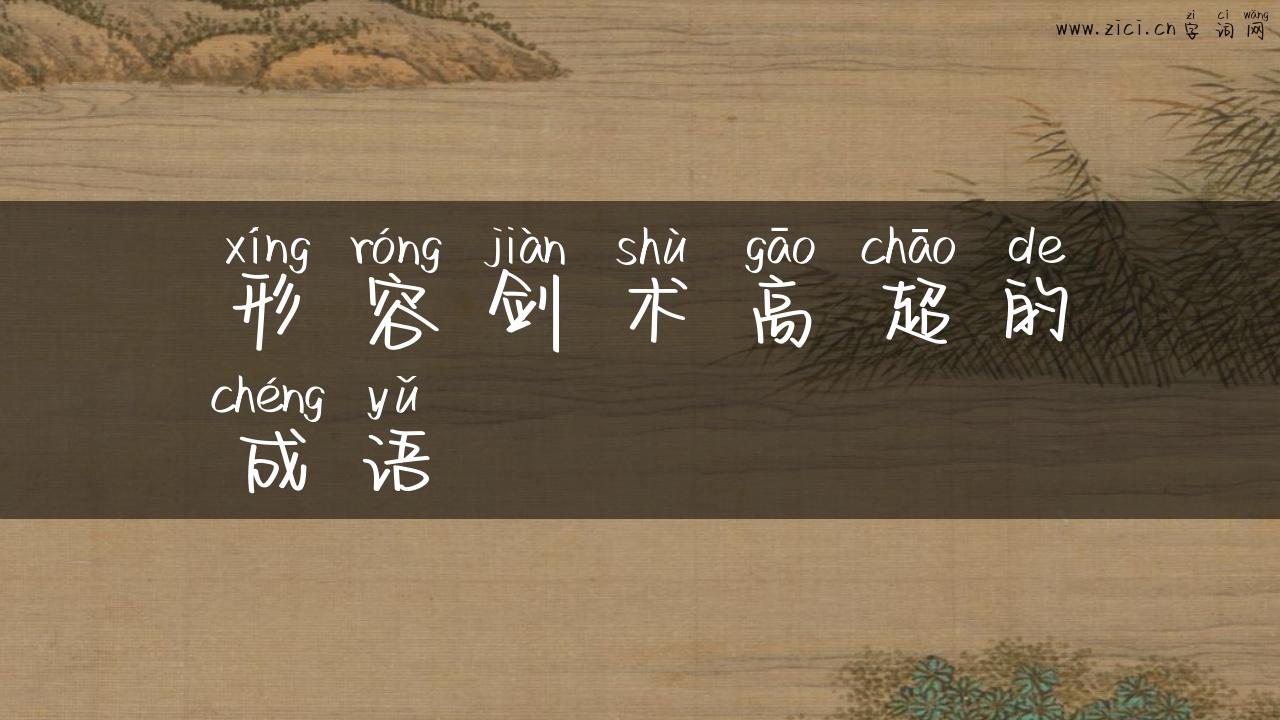 zì cí wǎng
www.zici.cn 字 词 网
xíng róng jiàn shù gāo chāo de
形 容 剑 术 高 超 的
chéng yǔ
成 语